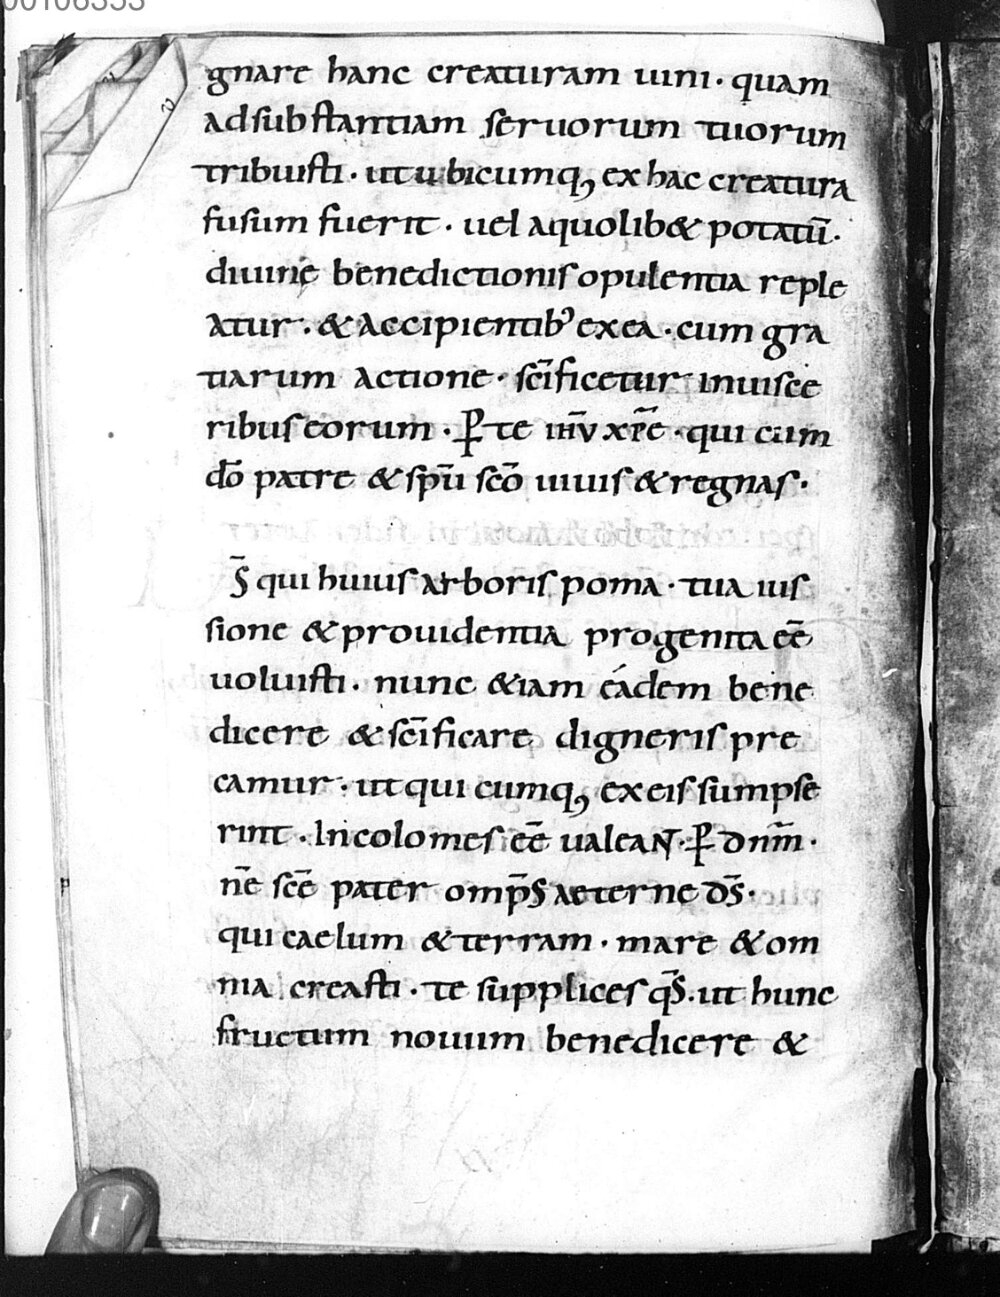 00106353
gnare hanc creaturam uini · quam
adsubstantiam seruorum tuorum
tribuisti · ut ubicumq; ex hac creatura
fusum fuerit · uel aquolib& potatū ·
diuinę benedictionis opulentia reple
atur · & accipientib' exea · cum gra
tiarum actione · sc̄ificetur inuisce
ribus eorum · P̄ te ih̄u xp̄e · qui cum
dō patre & sp̄u scō uiuis & regnas ·
S̄ qui huius arboris poma · tua ius
sione & prouidentia progenita eē
uoluisti · nunc &iam eádem bene
dicere & sc̄ificare digneris pre
camur · ut qui cumq; ex eis sumpse
rint · Incolomes eē ualeant · P̄ dnm̄ ·
n̄e sc̄e pater omp̄s aeterne ds̄ ·
qui caelum & terram · mare & om
nia creasti · te supplices qs̄ · ut hunc
fructum nouum benedicere &